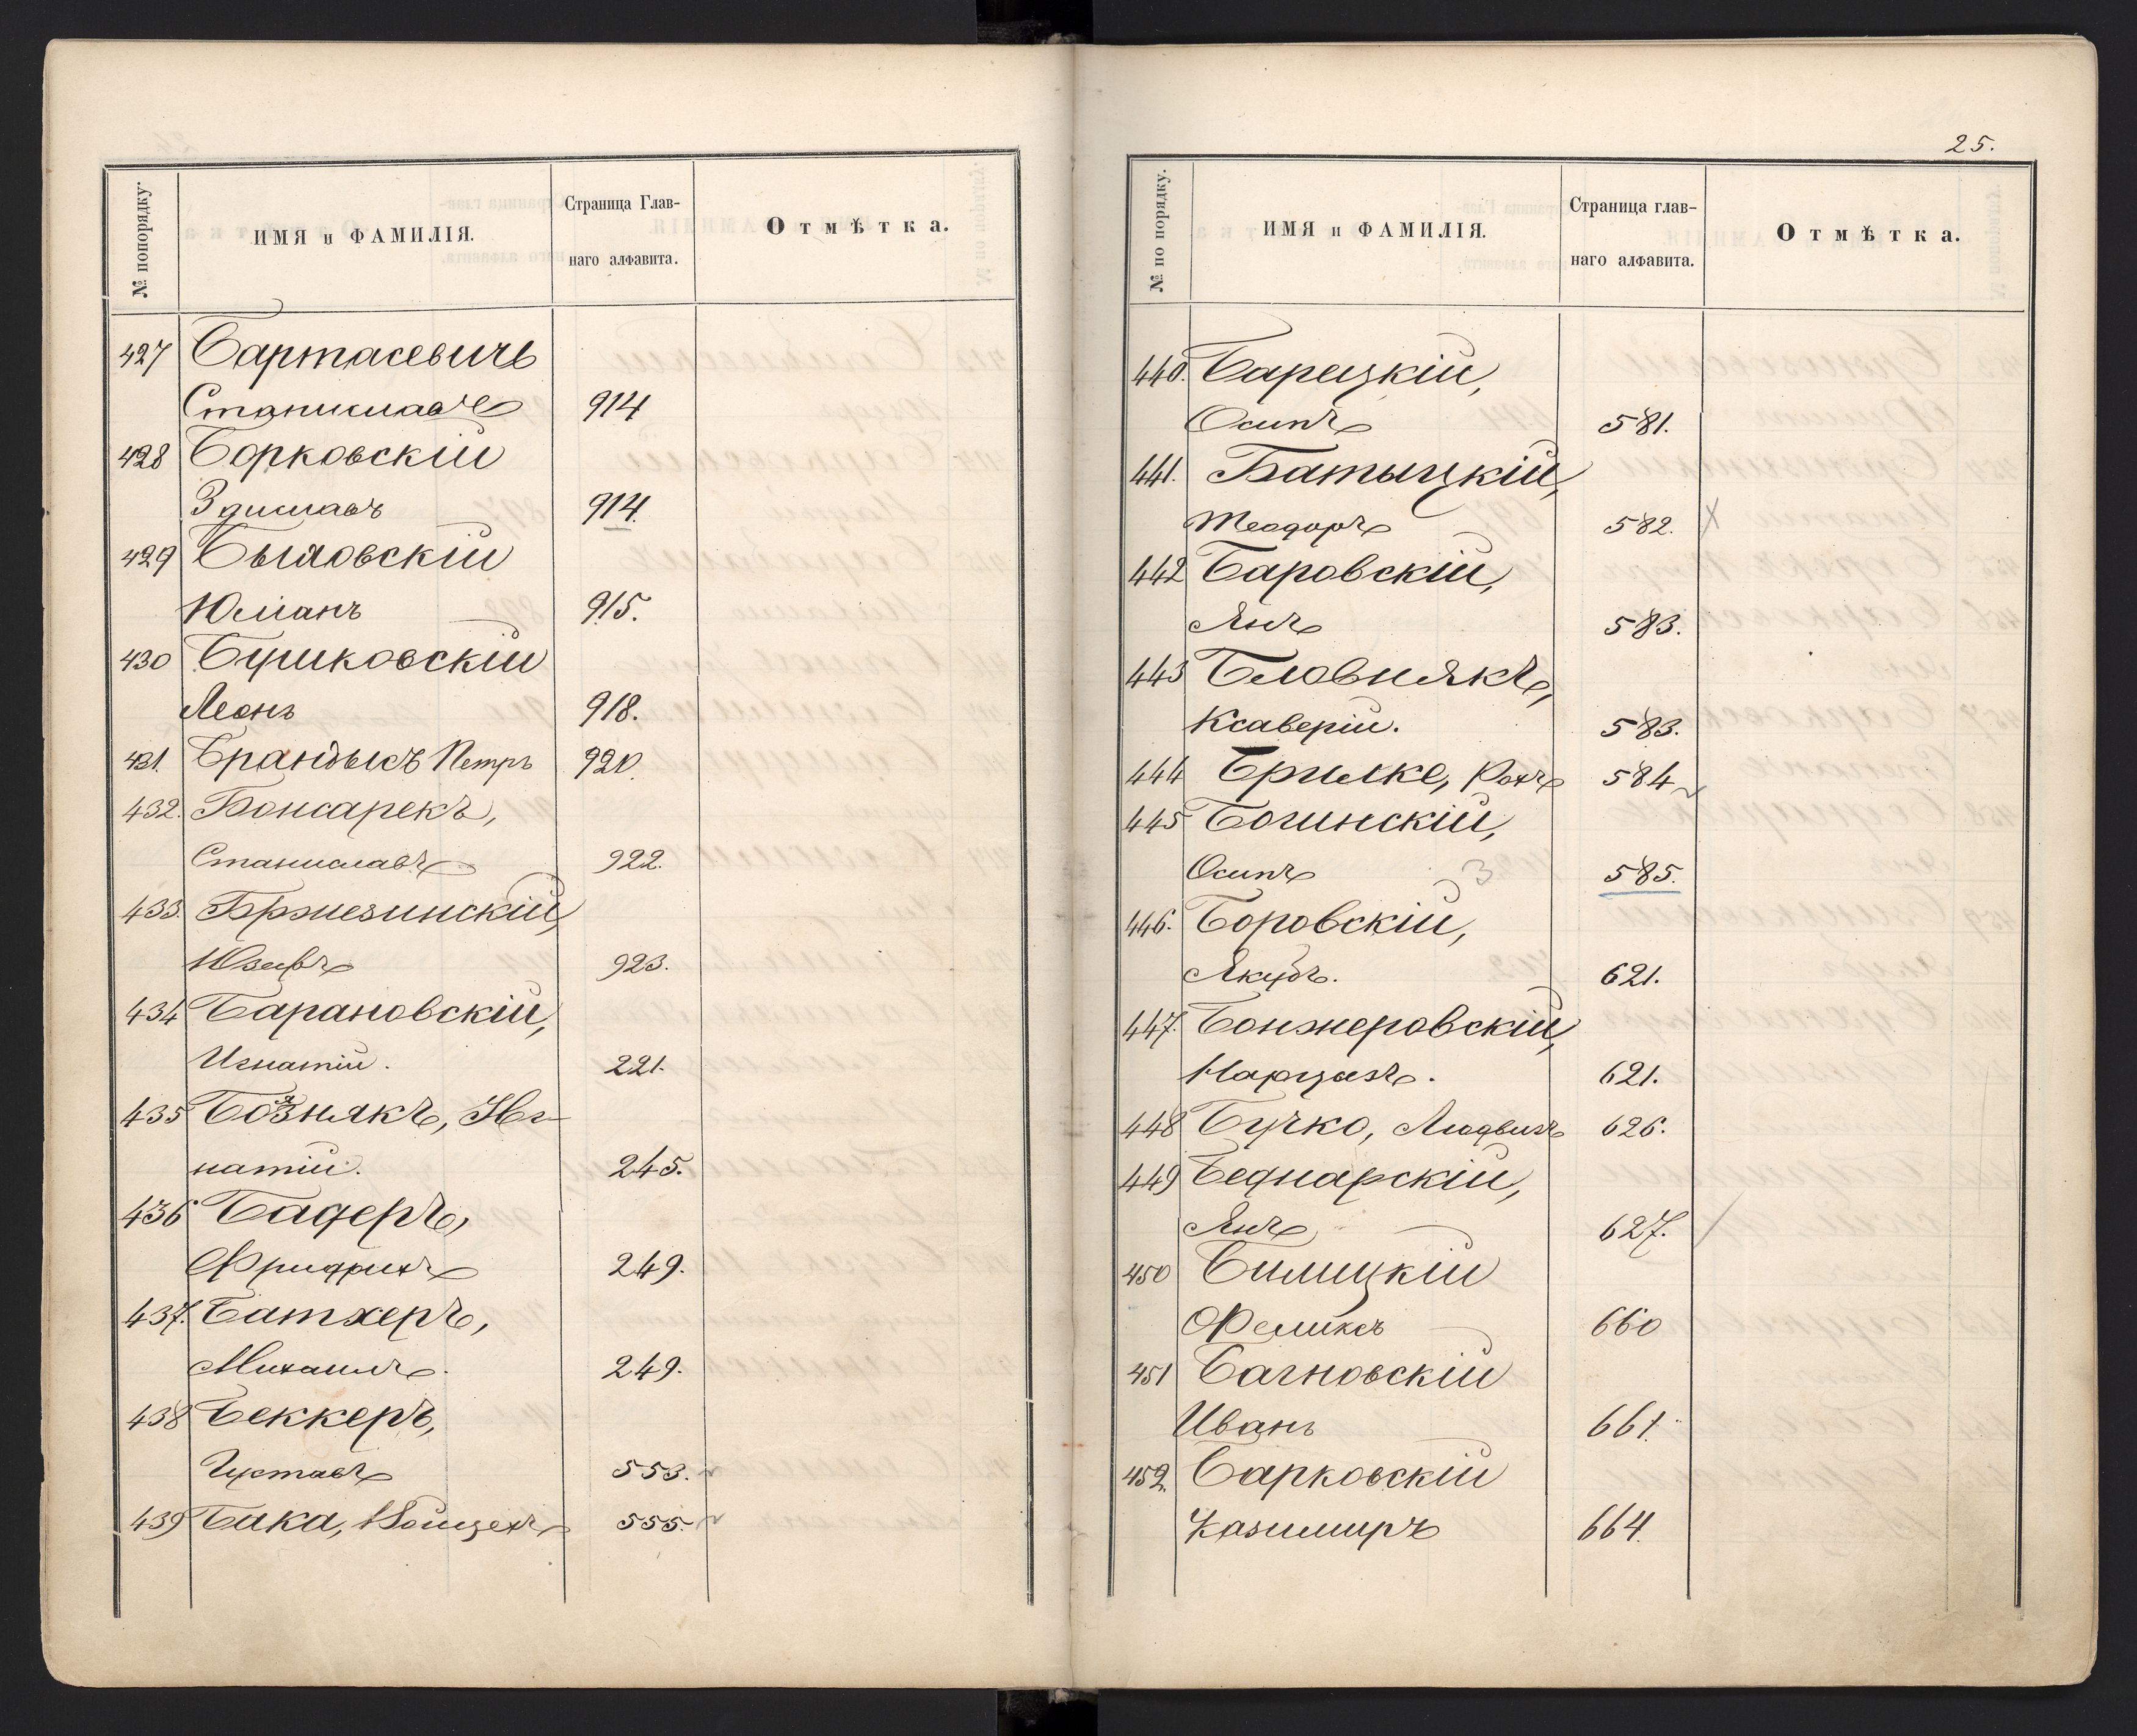 № попорядку.
ИМЯ и ФАМИЛІЯ.
Страница Глав-
наго алфавита.
Отмѣтка.
427 Бартасевичъ
Станиславъ 914
428 Борковскій
Здиславъ 914.
429 Быловскій
Юліанъ 915.
430 Бушковскій
Леонъ 918.
431. Брандысъ Петръ 920.
432. Бонсарекъ,
Станиславъ 922.
433. Бржезинскій,
Юзефъ 923.
434 Барановскій,
Игнатій. 221.
435 Бознякъ, Иг-
натій. 245.
436 Бадеръ,
Фридрихъ 249.
437. Батхеръ,
Михаилъ. 249.
438 Беккеръ,
Густавъ 553.
439 Бака, Войцехъ 555.
25.
№ по порядку.
ИМЯ и ФАМИЛІЯ.
Страница глав-
наго алфавита.
Отмѣтка.
440. Барецкій,
Осипъ 581.
441. Батыцкій,
Теодоръ 582.
442 Баровскій,
Янъ 583.
443 Бловнякъ,
Ксаверій. 583.
444 Брилке, Рохъ 584
445 Богинскій,
Осипъ 3 585.
446. Боровскій,
Якубъ. 621.
447. Бонжеровскій,
Нарцызъ. 621.
448 Бучко, Людвигъ 626.
449 Беднарскій,
Янъ 627.
450 Билицкій
Феликсъ 660
451 Багновскій
Иванъ 661.
452. Барковскій
Казимиръ 664.